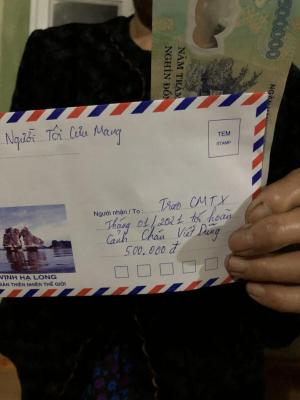 500000
NĂM TRĂM
NGHÌN ĐỒNG
Người Tôi Cưu Mang
TEM
STAMP
Người nhận / To: Trao CMTX
Tháng 01/2021 tới hoàn
Cảnh Chấn Việt Dũng
500.000 đ
VỊNH HẠ LONG
THIÊN NHIÊN THẾ GIỚI